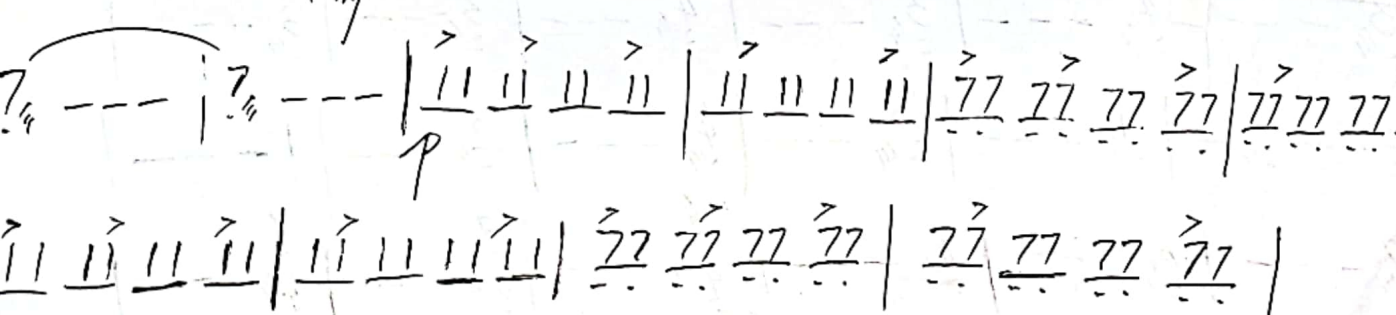 7 - - - | 7 - - - | 11 11 11 11 | 11 11 11 11 | 77 77 77 77 | 77 77 77
p
11 11 11 11 | 11 11 11 11 | 77 77 77 77 | 77 77 77 77 |